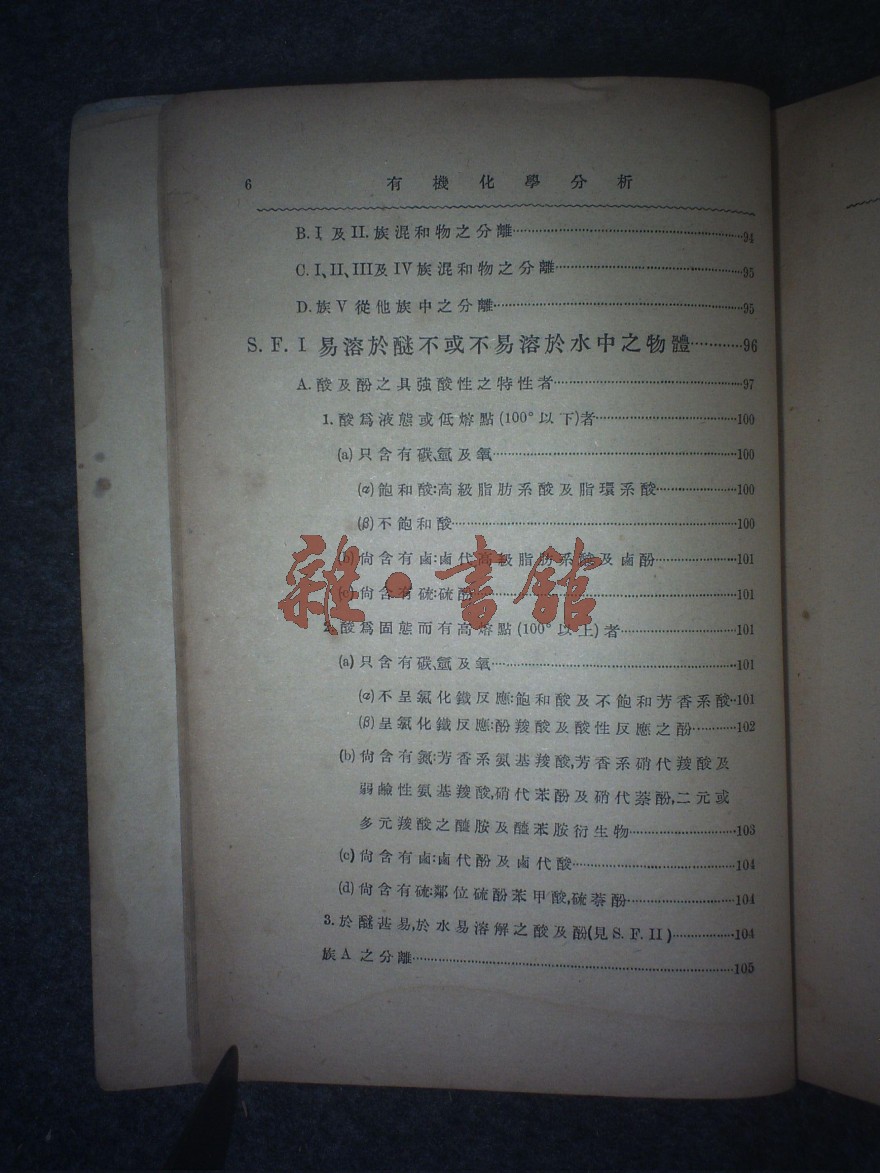 6 有機化學分析
B. I 及 II. 族混和物之分離……94
C. I、II、III及 IV 族混和物之分離……95
D. 族 V 從他族中之分離……95
S. F. I 易溶於醚不或不易溶於水中之物體……96
A. 酸及酚之具強酸性之特性者……97
1. 酸爲液態或低熔點(100°以下)者……100
(a) 只含有碳、氫及氧……100
(α) 飽和酸:高級脂肪系酸及脂環系酸……100
(β) 不飽和酸……100
(b) 尙含有鹵:鹵代高級脂肪系酸及鹵酚……101
(c) 尙含有硫:硫酚……101
2. 酸爲固態而有高熔點(100°以上)者……101
(a) 只含有碳、氫及氧……101
(α) 不呈氯化鐵反應:飽和酸及不飽和芳香系酸..101
(β) 呈氯化鐵反應:酚羧酸及酸性反應之酚……102
(b) 尙含有氮:芳香系氨基羧酸,芳香系硝代羧酸及
弱鹼性氨基羧酸,硝代苯酚及硝代萘酚,二元或
多元羧酸之醯胺及醯苯胺衍生物……103
(c) 尙含有鹵:鹵代酚及鹵代酸……104
(d) 尙含有硫:鄰位硫酚苯甲酸,硫萘酚……104
3. 於醚甚易,於水易溶解之酸及酚(見 S. F. II)……104
族 A 之分離……105
雜·書館